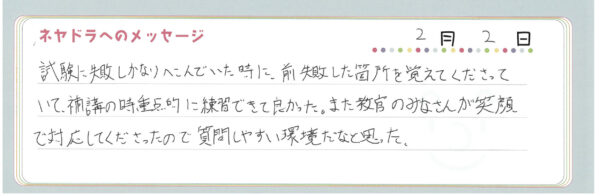 ネヤドラへのメッセージ 2月 2日
試験に失敗しかなりへこんでいた時に、前失敗した箇所を覚えてくださって
いて、補講の時重点的に練習できて良かった。また教官のみなさんが笑顔
で対応してくださったので質問しやすい環境だなと思った。